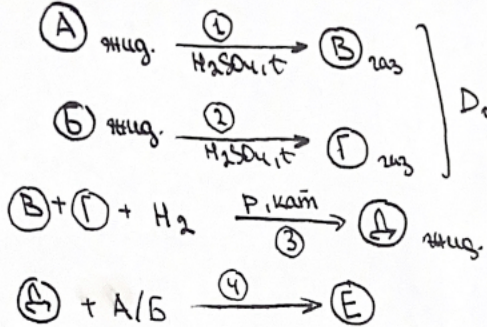 А жид. ① H₂SO₄,t → В газ
Б жид. ② H₂SO₄,t → Г газ
D
В + Г + H₂ p,кат ③ → Д жид.
Д + А/Б ④ → Е